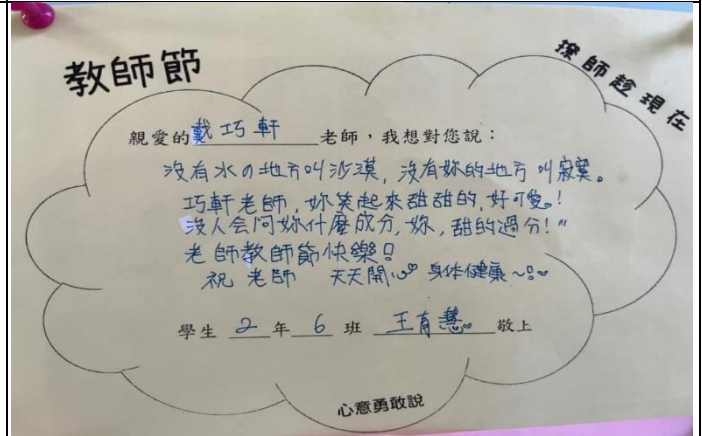 教師節
撩師趁現在
親愛的戴巧軒老師，我想對您說：
沒有水の地方叫沙漠，沒有妳的地方叫寂寞。
巧軒老師，妳笑起來甜甜的，好可愛。!
沒人会问妳什麼成分，妳，甜的過分!"
老師教師節快樂!
祝 老師 天天開心 身体健康~!~
學生 2 年 6 班 王宥慧。敬上
心意勇敢說